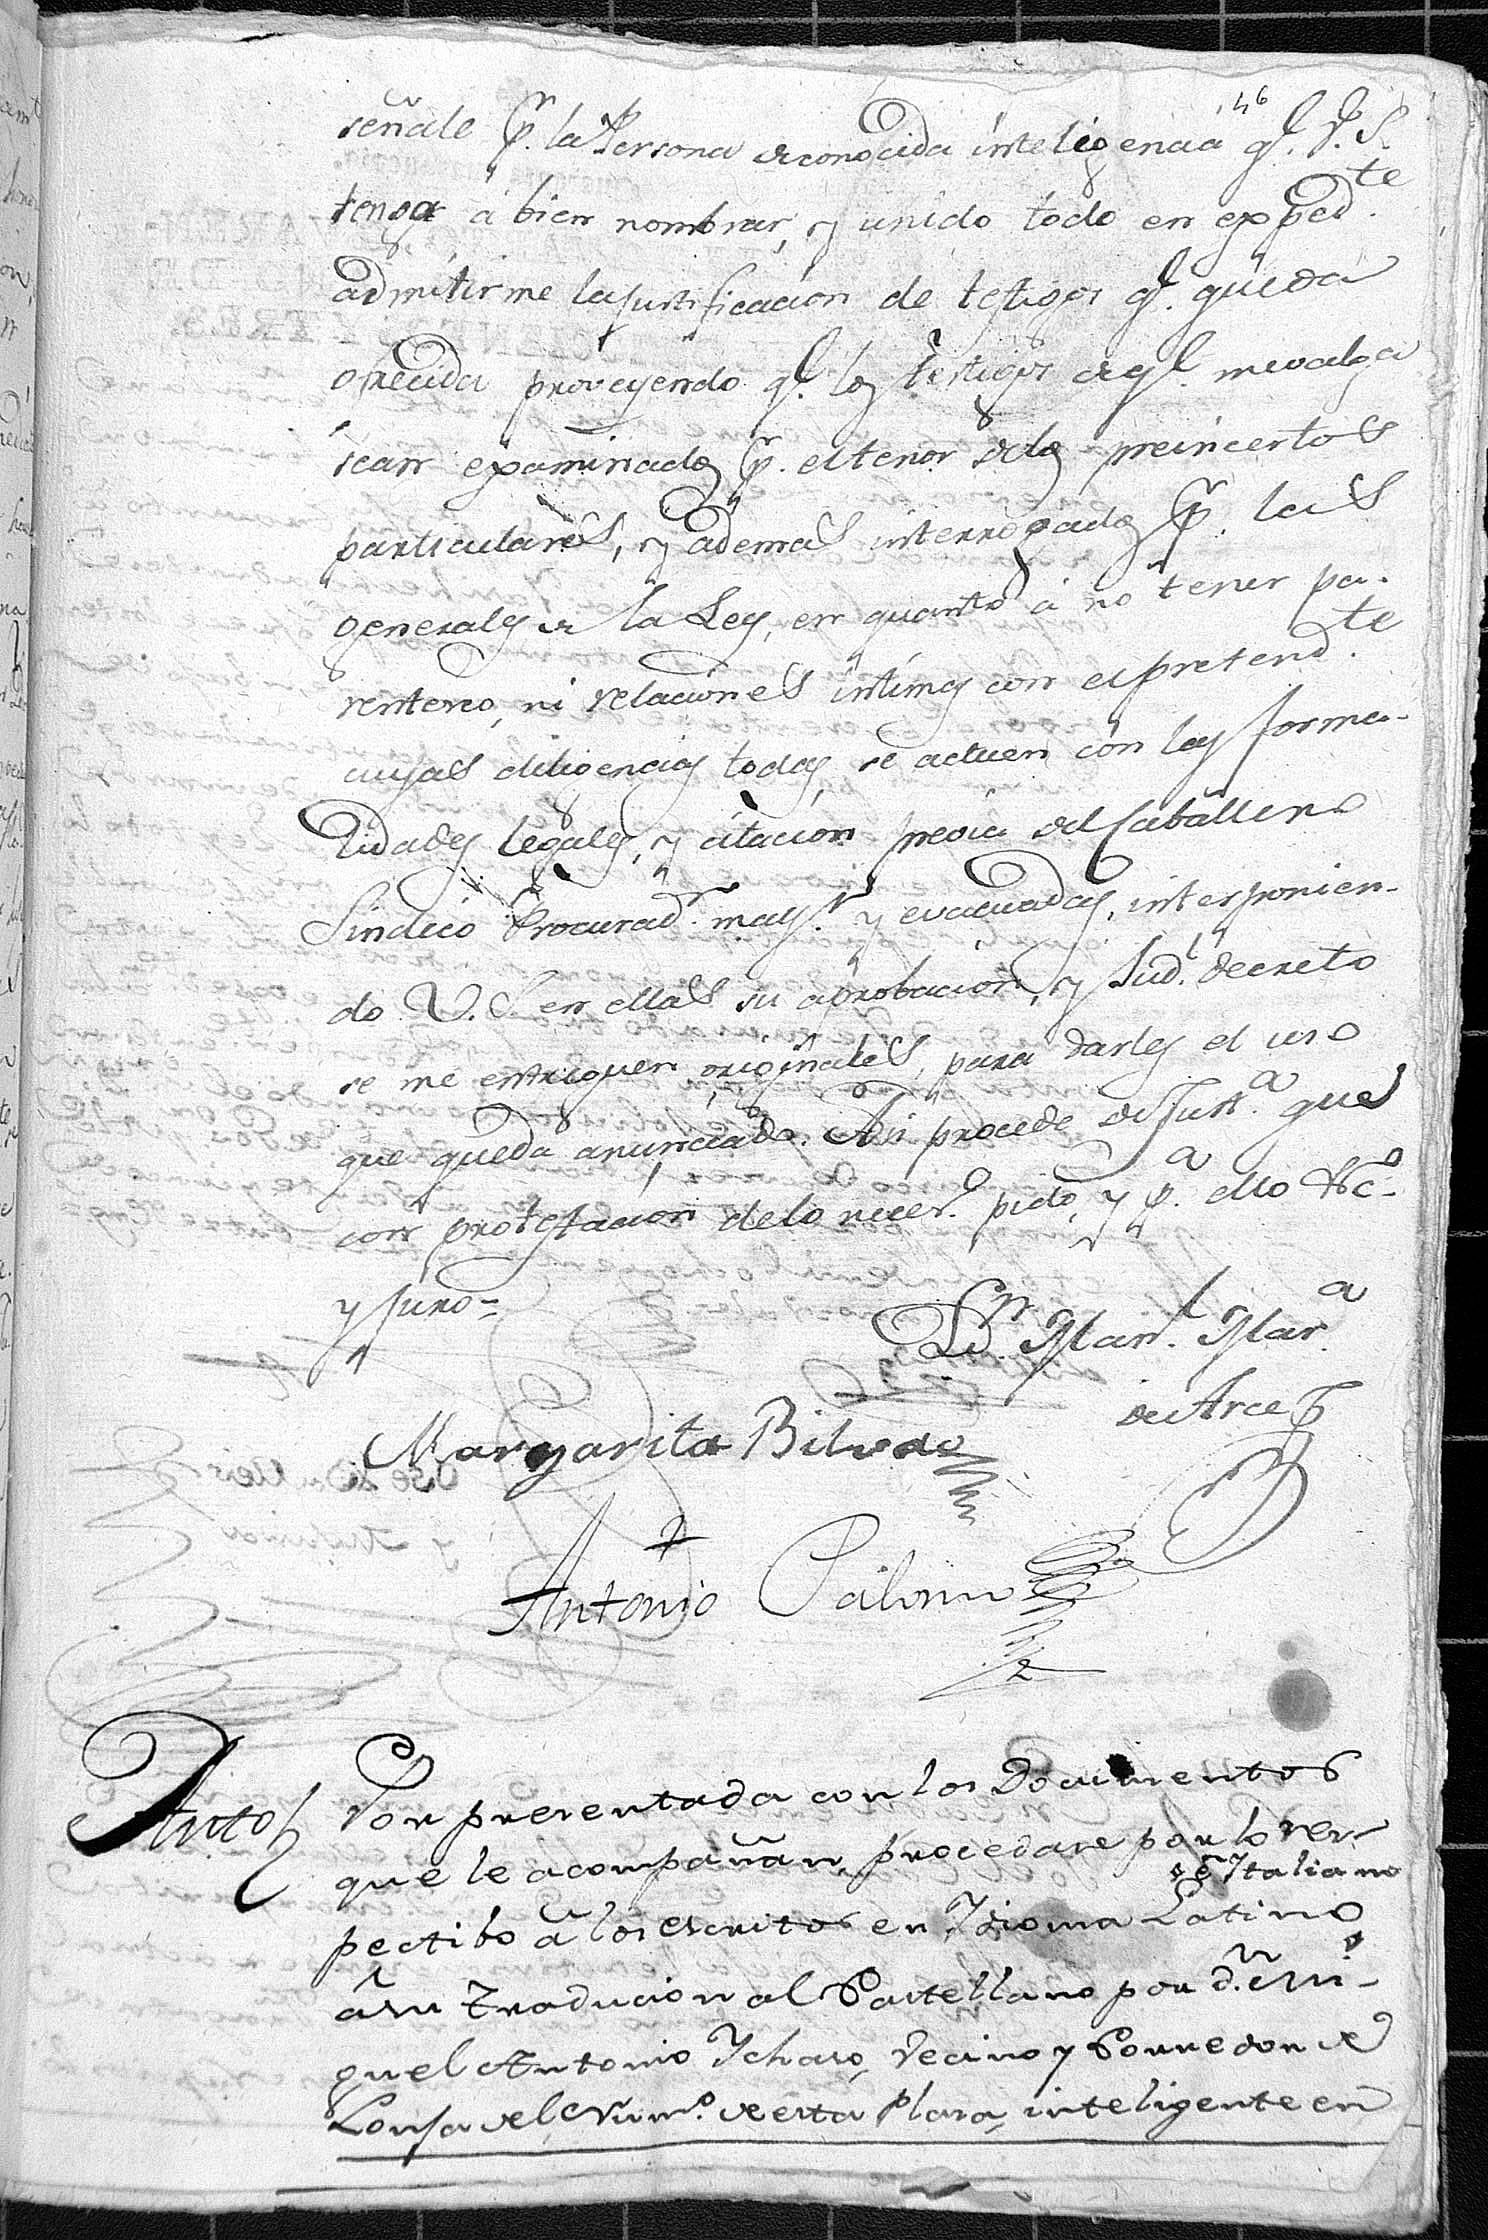 46
señale pr. la Persona de conocida inteligencia qe. V. S.
tenga á bien nombrar, y unido todo en expedte.
admitirme la justificacion de testigos qe. queda
ofrecida proveyendo qe. los testigos de qe. me valga
sean examinados pr. el tenor de los preincertos
particulares, y ademas interrogados pr. las
generales de la Ley, en quanto á no tener pa-
rentesco, ni relaciones intimas con el pretendte.
cuyas diligencias todas se actuen con las forma-
lidades legales, y citacion previa del Caballero
Sindico Procuradr. mayr. y evacuadas, interponien-
do V. S. en ellas su aprobacion, y Judl. decreto
se me entreguen originales, para darles el uso
que queda anunciado. Asi procede de Justa. que
con protestacion de lo neceso. pido, y pa. ello &co.
y juro=
Ldo. Manl. Mara.
de Arce
Margarita
Antonio Palomo
Auto
Por presentada con los Documentos
que le acompañan, procedase por lo res-
é Italiano
pectibo á los escritos en Idioma Latino
á su traducion al Castellano por dn. Mi-
guel Antonio Icharo, Vecino y Corredor de
Lonja del Numo. de esta Plaza, inteligente en